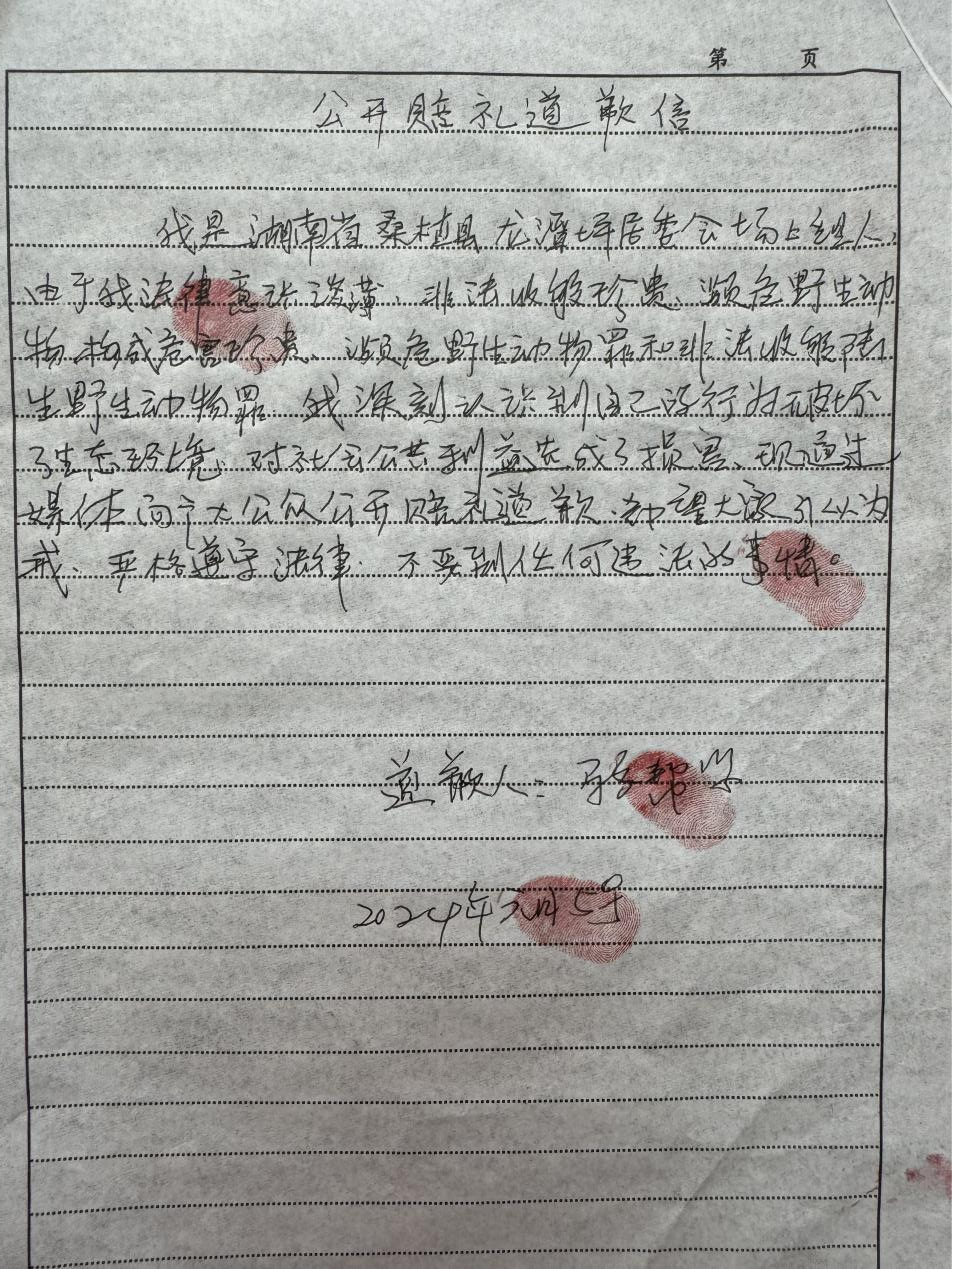 第 页
公开赔礼道歉信
我是湖南省桑植县龙潭坪居委会场上组人,
由于我法律意识淡薄、非法收购珍贵、濒危野生动
物构成危害珍贵、濒危野生动物罪和非法收购陆
生野生动物罪.我深刻认识到自己的行为破坏
了生态环境,对社会公共利益造成了损害、现通过
媒体向广大公众公开赔礼道歉.希望大家引以为
戒、严格遵守法律.不要到任何违法的事情。
道歉人:
2024年元月5号